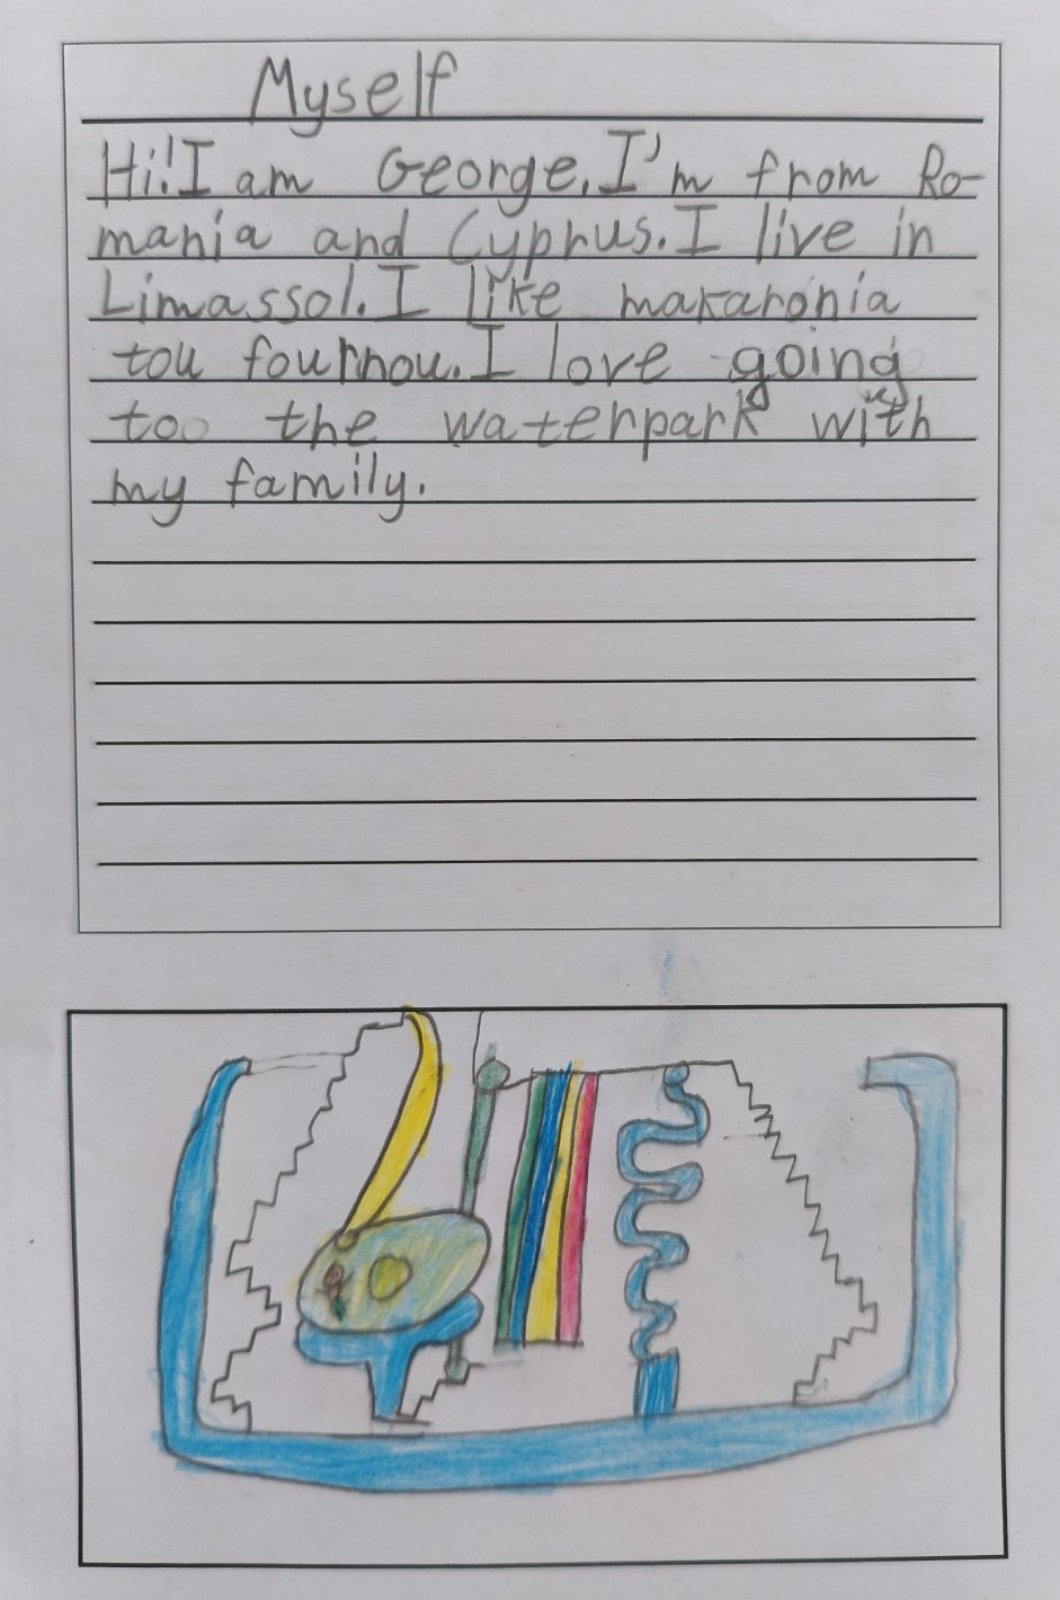 Myself
Hi! I am George. I'm from Ro-
mania and Cyprus. I live in
Limassol. I like makaronia
tou fournou. I love going
to the waterpark with
my family.